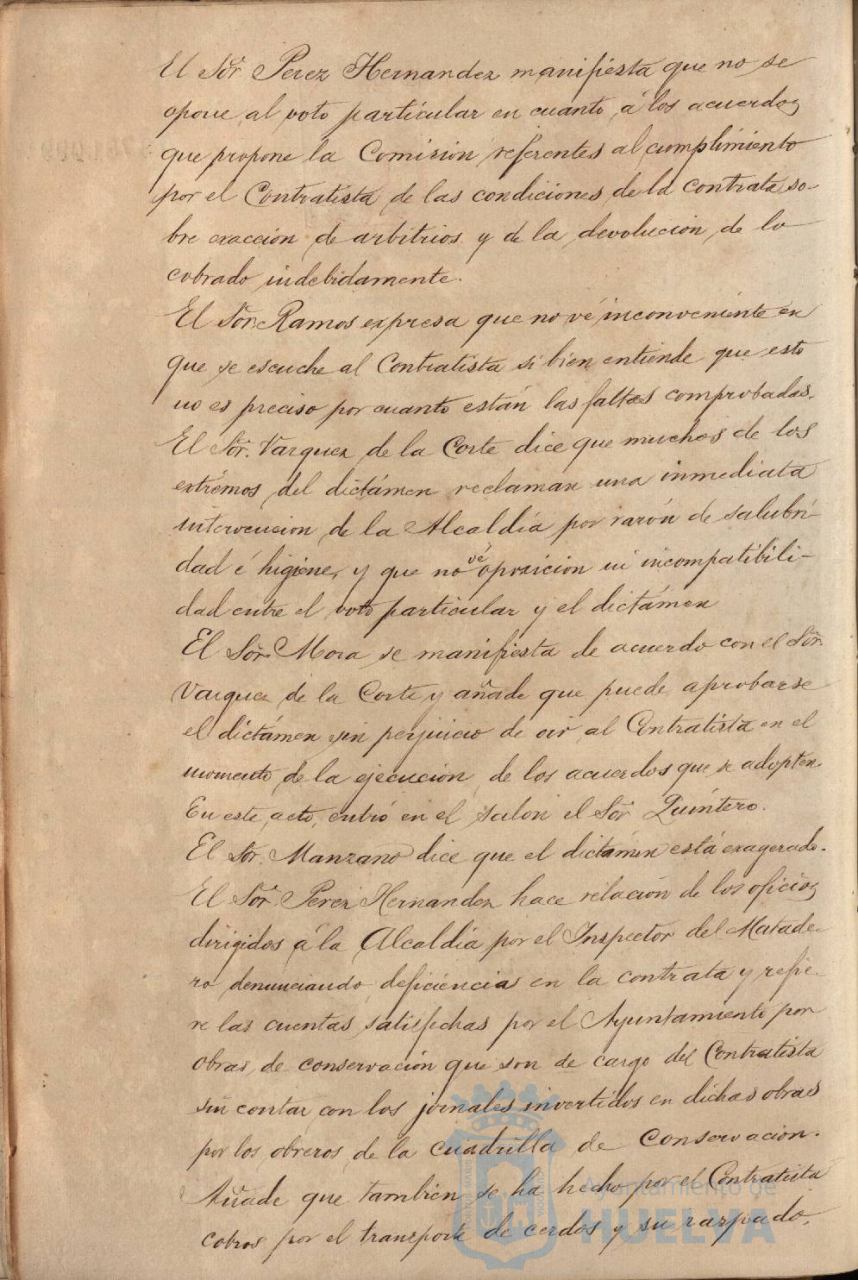 El Sor. Perez Hernandez manifiesta que no se
opone al voto particular en cuanto á los acuerdos
que propone la Comision referentes al cumplimiento
por el Contratista de las condiciones de la contrata so-
bre exacción de arbitrios y de la devolución de lo
cobrado indebidamente.
El Sor. Ramos expresa que no vé inconveniente en
que se escuche al Contratista si bien entiende que esto
no es preciso por cuanto están las faltas comprobadas.
El Sor. Vazquez de la Corte dice que muchos de los
extremos del dictámen reclaman una inmediata
intervencion de la Alcaldía por razón de salubri-
dad é higiene, y que no vé oposicion ni incompatibili-
dad entre el voto particular y el dictámen
El Sor. Mora se manifiesta de acuerdo con el Sor.
Vazquez de la Corte y añade que puede aprobarse
el dictámen sin perjuicio de oir al Contratista en el
momento de la ejecución de los acuerdos que se adopten.
En este acto, entró en el salon el Sor. Quintero.
El Sor. Manzano dice que el dictámen está exagerado.
El Sor. Perez Hernandez hace relación de los oficios
dirigidos á la Alcaldía por el Inspector del Matade-
ro denunciando deficiencias en la contrata y refie-
re las cuentas satisfechas por el Ayuntamiento por
obras de conservación que son de cargo del Contratista
sin contar con los jornales invertidos en dichas obras
por los obreros de la cuadrilla de Conservacion.
Añade que tambien se ha hecho por el Contratista
cobros por el transporte de cerdos y su raspado.
Ayuntamiento de
HUELVA